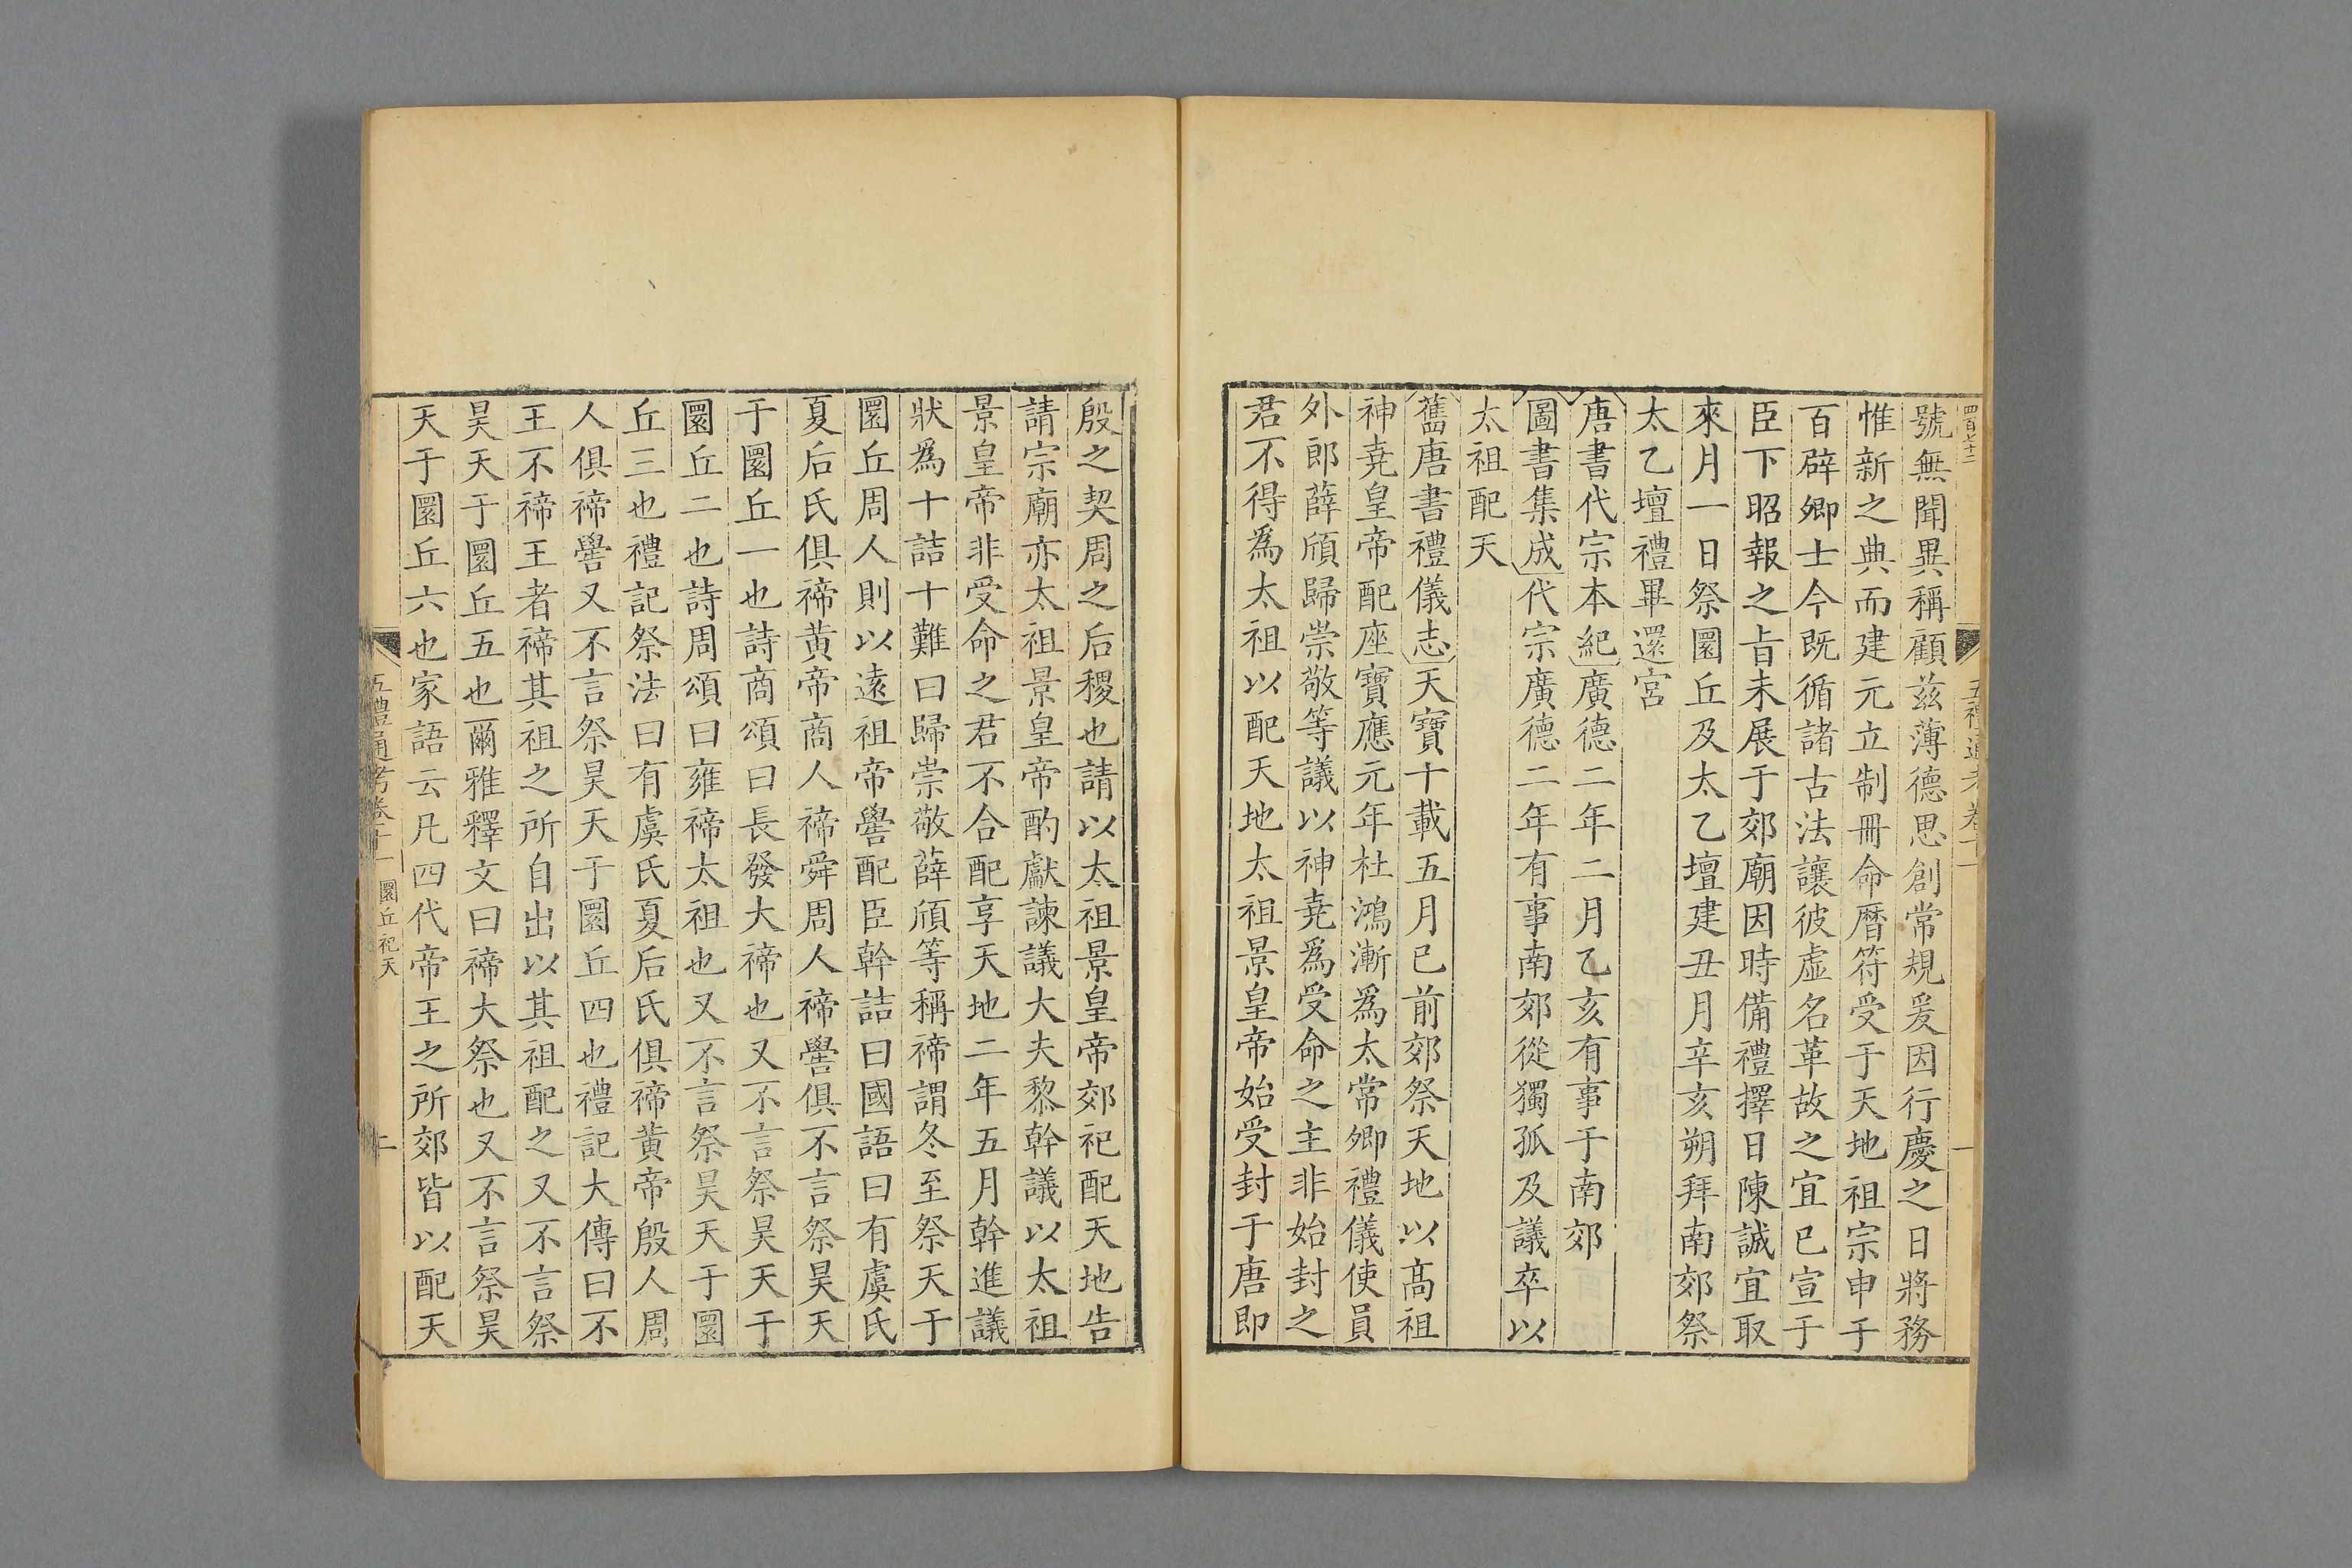 四百七十二
五禮通考卷十一
一
號無聞異稱顧茲薄德思創常規爰因行慶之日將務
惟新之典而建元立制冊命曆符受于天地祖宗申于
百辟卿士今既循諸古法讓彼虛名革故之宜已宣于
臣下昭報之旨未展于郊廟因時備禮擇日陳誠宜取
來月一日祭圜丘及太乙壇建丑月辛亥朔拜南郊祭
太乙壇禮畢還宮
唐書代宗本紀廣德二年二月乙亥有事于南郊
圖書集成代宗廣德二年有事南郊從獨孤及議卒以
太祖配天
舊唐書禮儀志天寶十載五月已前郊祭天地以高祖
神堯皇帝配座寶應元年杜鴻漸爲太常卿禮儀使員
外郎薛頎歸崇敬等議以神堯爲受命之主非始封之
君不得爲太祖以配天地太祖景皇帝始受封于唐即
殷之契周之后稷也請以太祖景皇帝郊祀配天地告
請宗廟亦太祖景皇帝酌獻諫議大夫黎幹議以太祖
景皇帝非受命之君不合配享天地二年五月幹進議
狀爲十詰十難曰歸崇敬薛頎等稱禘謂冬至祭天于
圜丘周人則以遠祖帝嚳配臣幹詰曰國語曰有虞氏
夏后氏俱禘黃帝商人禘舜周人禘嚳俱不言祭昊天
于圜丘一也詩商頌曰長發大禘也又不言祭昊天于
圜丘二也詩周頌曰雍禘太祖也又不言祭昊天于圜
丘三也禮記祭法曰有虞氏夏后氏俱禘黃帝殷人周
人俱禘嚳又不言祭昊天于圜丘四也禮記大傳曰不
王不禘王者禘其祖之所自出以其祖配之又不言祭
昊天于圜丘五也爾雅釋文曰禘大祭也又不言祭昊
天于圜丘六也家語云凡四代帝王之所郊皆以配天
五禮通考卷十一 圜丘祀天